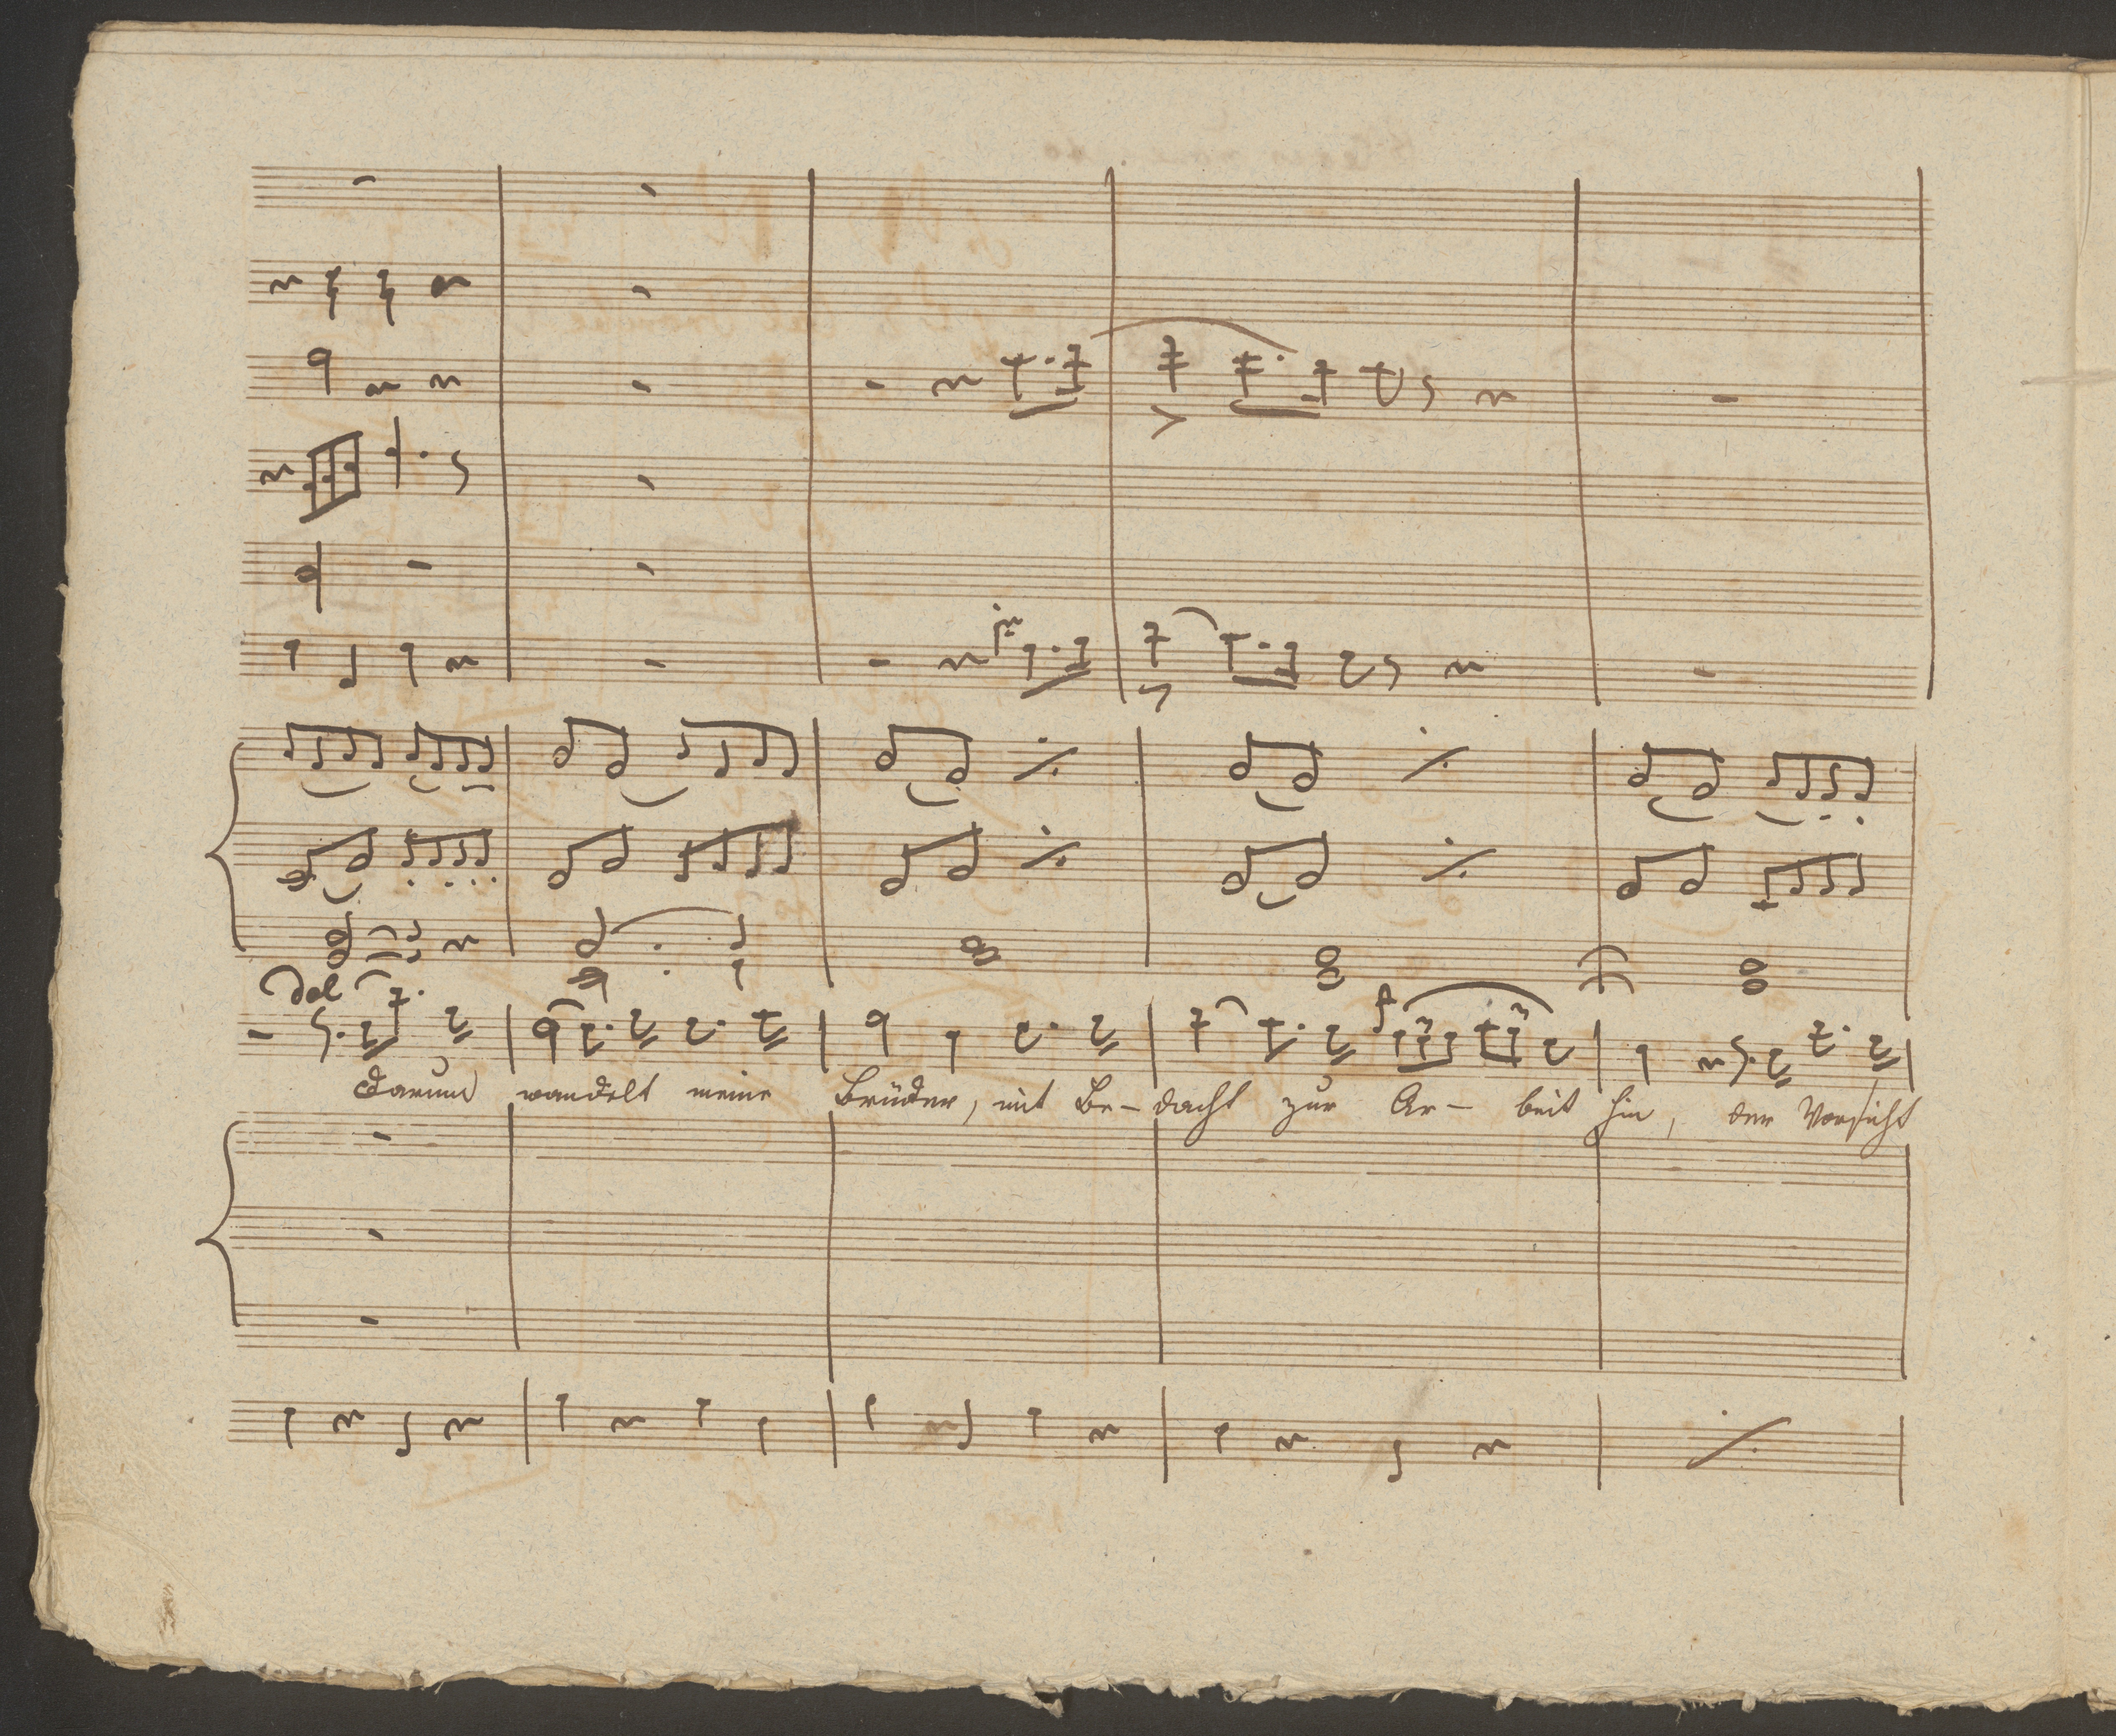 dol
Darum wandelt meine Brüder, mit Be- dacht zur Ar- beit hin, der Vorsicht